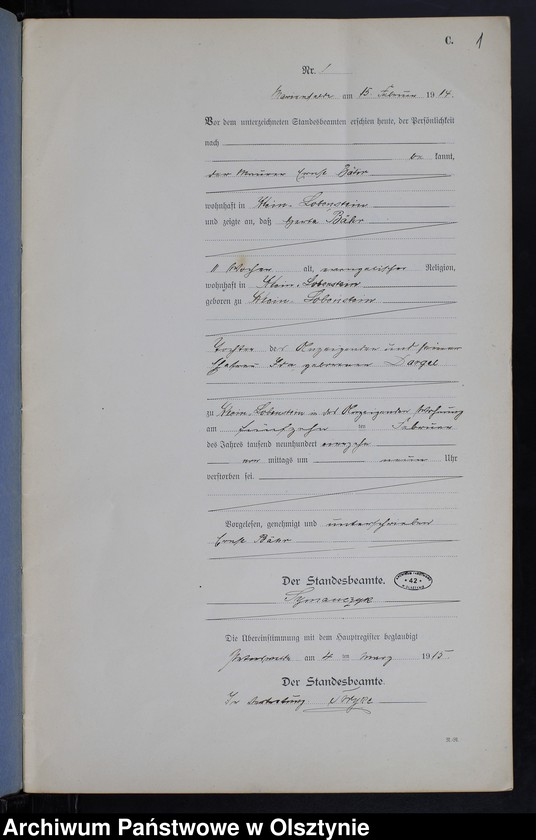 C. 1
Nr. 1
am 15. Februar 1914.
Vor dem unterzeichneten Standesbeamten erschien heute, der Persönlichkeit
nach
be kannt,
der Maurer Ernst Bähr
wohnhaft in Klein-Lobenstein
und zeigte an, daß Herta Bähr
11 Wochen alt, evangelischer Religion,
wohnhaft in Klein-Lobenstein
geboren zu Klein-Lobenstein
Tochter des Anzeigenden und seiner
Ehefrau Ida geborenen Dargel
zu Klein-Lobenstein in des Anzeigenden Wohnung
am fünfzehn ten Februar
des Jahres tausend neunhundert vierzehn
vor mittags um neun Uhr
verstorben sei.
Vorgelesen, genehmigt und unterschrieben
Ernst Bähr
Der Standesbeamte.
Szymanczyk
42
Die Übereinstimmung mit dem Hauptregister beglaubigt
am 4 ten März 1915.
Der Standesbeamte.
In Vertretung
Archiwum Państwowe w Olsztynie